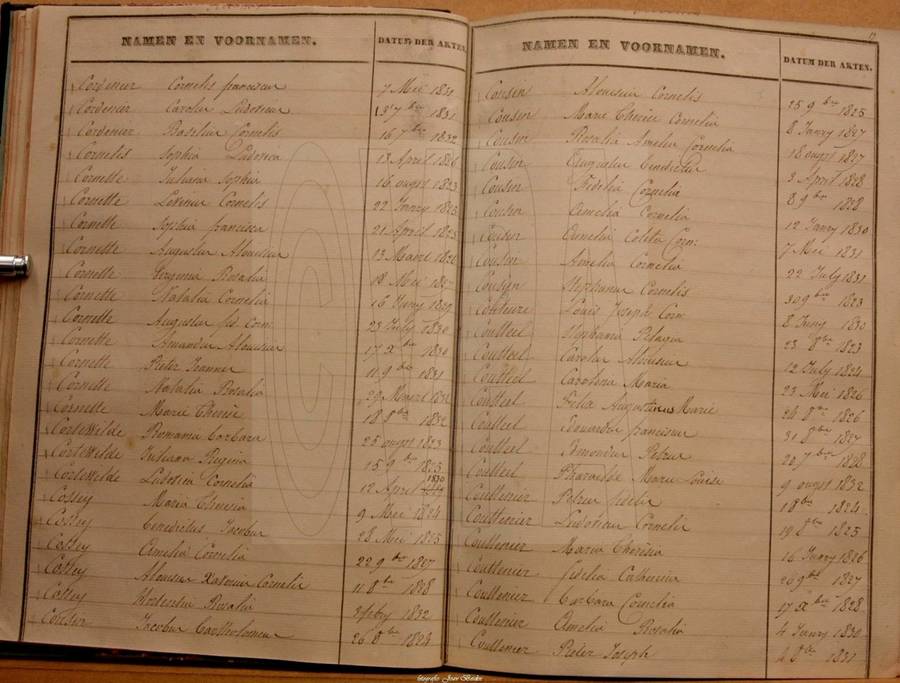 NAMEN EN VOORNAMEN. DATUM DER AKTEN.
Cordenier Cornelis franciscus 7 Mei 1831
Cordenier Carolus Ludovicus 13 7bre 1831
Cordenier Basilius Cornelis 16 7bre 1832
Cornelis Sophia Ludovica 13 April 1826
Cornette Juliana Sophia 16 ougst 1823
Cornette Livinus Cornelis 22 Janry 1825
Cornette Sophia francisca 21 April 1825
Cornette Augustus Alousius 13 Maart 1826
Cornette Virginia Rosalia 18 Mei 1827
Cornette Natalia Cornelia 16 Juny 1829
Cornette Augustus fs Corn: 23 July 1830
Cornette Amandus Alousius 17 Xbre 1830
Cornette Pieter 11 9bre 1831
Cornette Natalia Rosalia 29 Maart 1832
Cornette Marie Therese 18 8bre 1832
Cortewilde Romania barbara 25 ougst 1823
Cortewilde Juliana Regina 15 9bre 1825
Cortewilde Ludovica Cornelia 12 April 1830
Cossey Maria Theresia 9 Mei 1824
Cossey benedictus Jacobus 28 Mei 1825
Cossey Amelia Cornelia 22 9bre 1827
Cossey Alousius Cornelis 11 8bre 1828
Cossey Hortentia Rosalia 1832
Cousin Jacobus bartholomeus 26 8bre 1824
NAMEN EN VOORNAMEN. DATUM DER AKTEN.
Cousin Alousius Cornelis 25 9bre 1825
Cousin Marie Therese Cornelia 8 Janry 1827
Cousin Rosalia Amelia Cornelia 18 ougst 1827
Cousin Augustus benedictus 2 April 1828
Cousin Fidelia Cornelia 8 9bre 1828
Cousin Amelia Cornelia 12 Janry 1830
Cousin Amelia Coleta Corn: 7 Mei 1831
Cousin Amelia Cornelia 22 July 1831
Couseyn Stephanus Cornelis 30 9bre 1823
Louis Joseph Corn: 8 Juny 1830
Coutteel Stephania Pelagia 23 8bre 1823
Coutteel Carolus Alousius 12 July 1824
Coutteel Carolina Maria 23 Mei 1826
Coutteel Felix Augustinus Marie 24 8bre 1826
Coutteel Eduardus franciscus 31 8bre 1827
Coutteel Petrus 20 7bre 1828
Coutteel Marie Louise 9 ougst 1832
Couttenier Petrus 1824
Couttenier Ludovicus Cornelis 19 8bre 1825
Couttenier Maria Theresia 16 Janry 1826
Couttenier Catherina 26 9bre 1827
Couttenier barbara Cornelia 17 Xbre 1828
Couttenier Amelia Rosalia 4 Janry 1830
Couttenier Pieter Joseph 4 8bre 1831